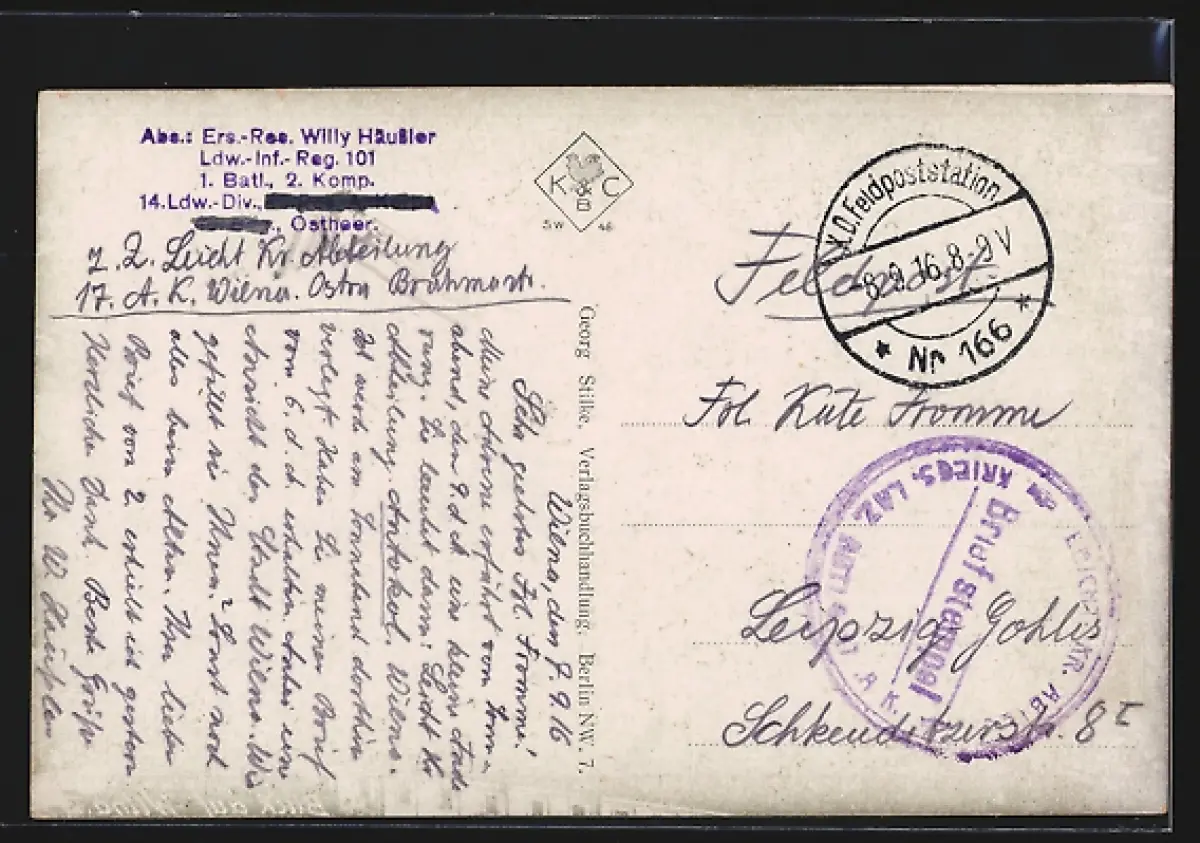 Abs.: Ers.-Res. Willy Häußler
Ldw.-Inf.-Reg. 101
1. Batl., 2. Komp.
14.Ldw.-Div.,
Ostheer.
z. Z. Leicht Kr. Abteilung
17. A. K. Wilna. Ostra
Wilna, den 7. 9. 16
Sehr geehrtes Frl. Fromme!
Meine Adresse erfährt vom Sonn-
abend, den 9. d. M. eine kleine Ände
rung. Sie lautet dann: Leicht Kr
Abteilung Antokol. Wilna.
Ich werde am Sonnabend dorthin
verlegt. Haben Sie meinen Brief
vom 6. d. M. erhalten. Anbei eine
Ansicht der Stadt Wilna. Wie
gefällt sie Ihnen? Sonst noch
alles beim Alten. Ihren lieben
Brief vom 2. erhielt ich gestern
Herzlichen Dank. Beste Grüße
Ihr W. Häußler
K & C
B
SW 46
Georg Stilke, Verlagsbuchhandlung, Berlin NW. 7.
K.D. Feldpoststation
8.9.16. 8-9 V
* Nr 166 *
Feldpost.
Frl. Käte Fromme
Leipzig Gohlis
Schkeuditzerstr. 8 I
KRIEGS. LAZ. ABTL.
LEICHTKR. ABT.
Briefstempel